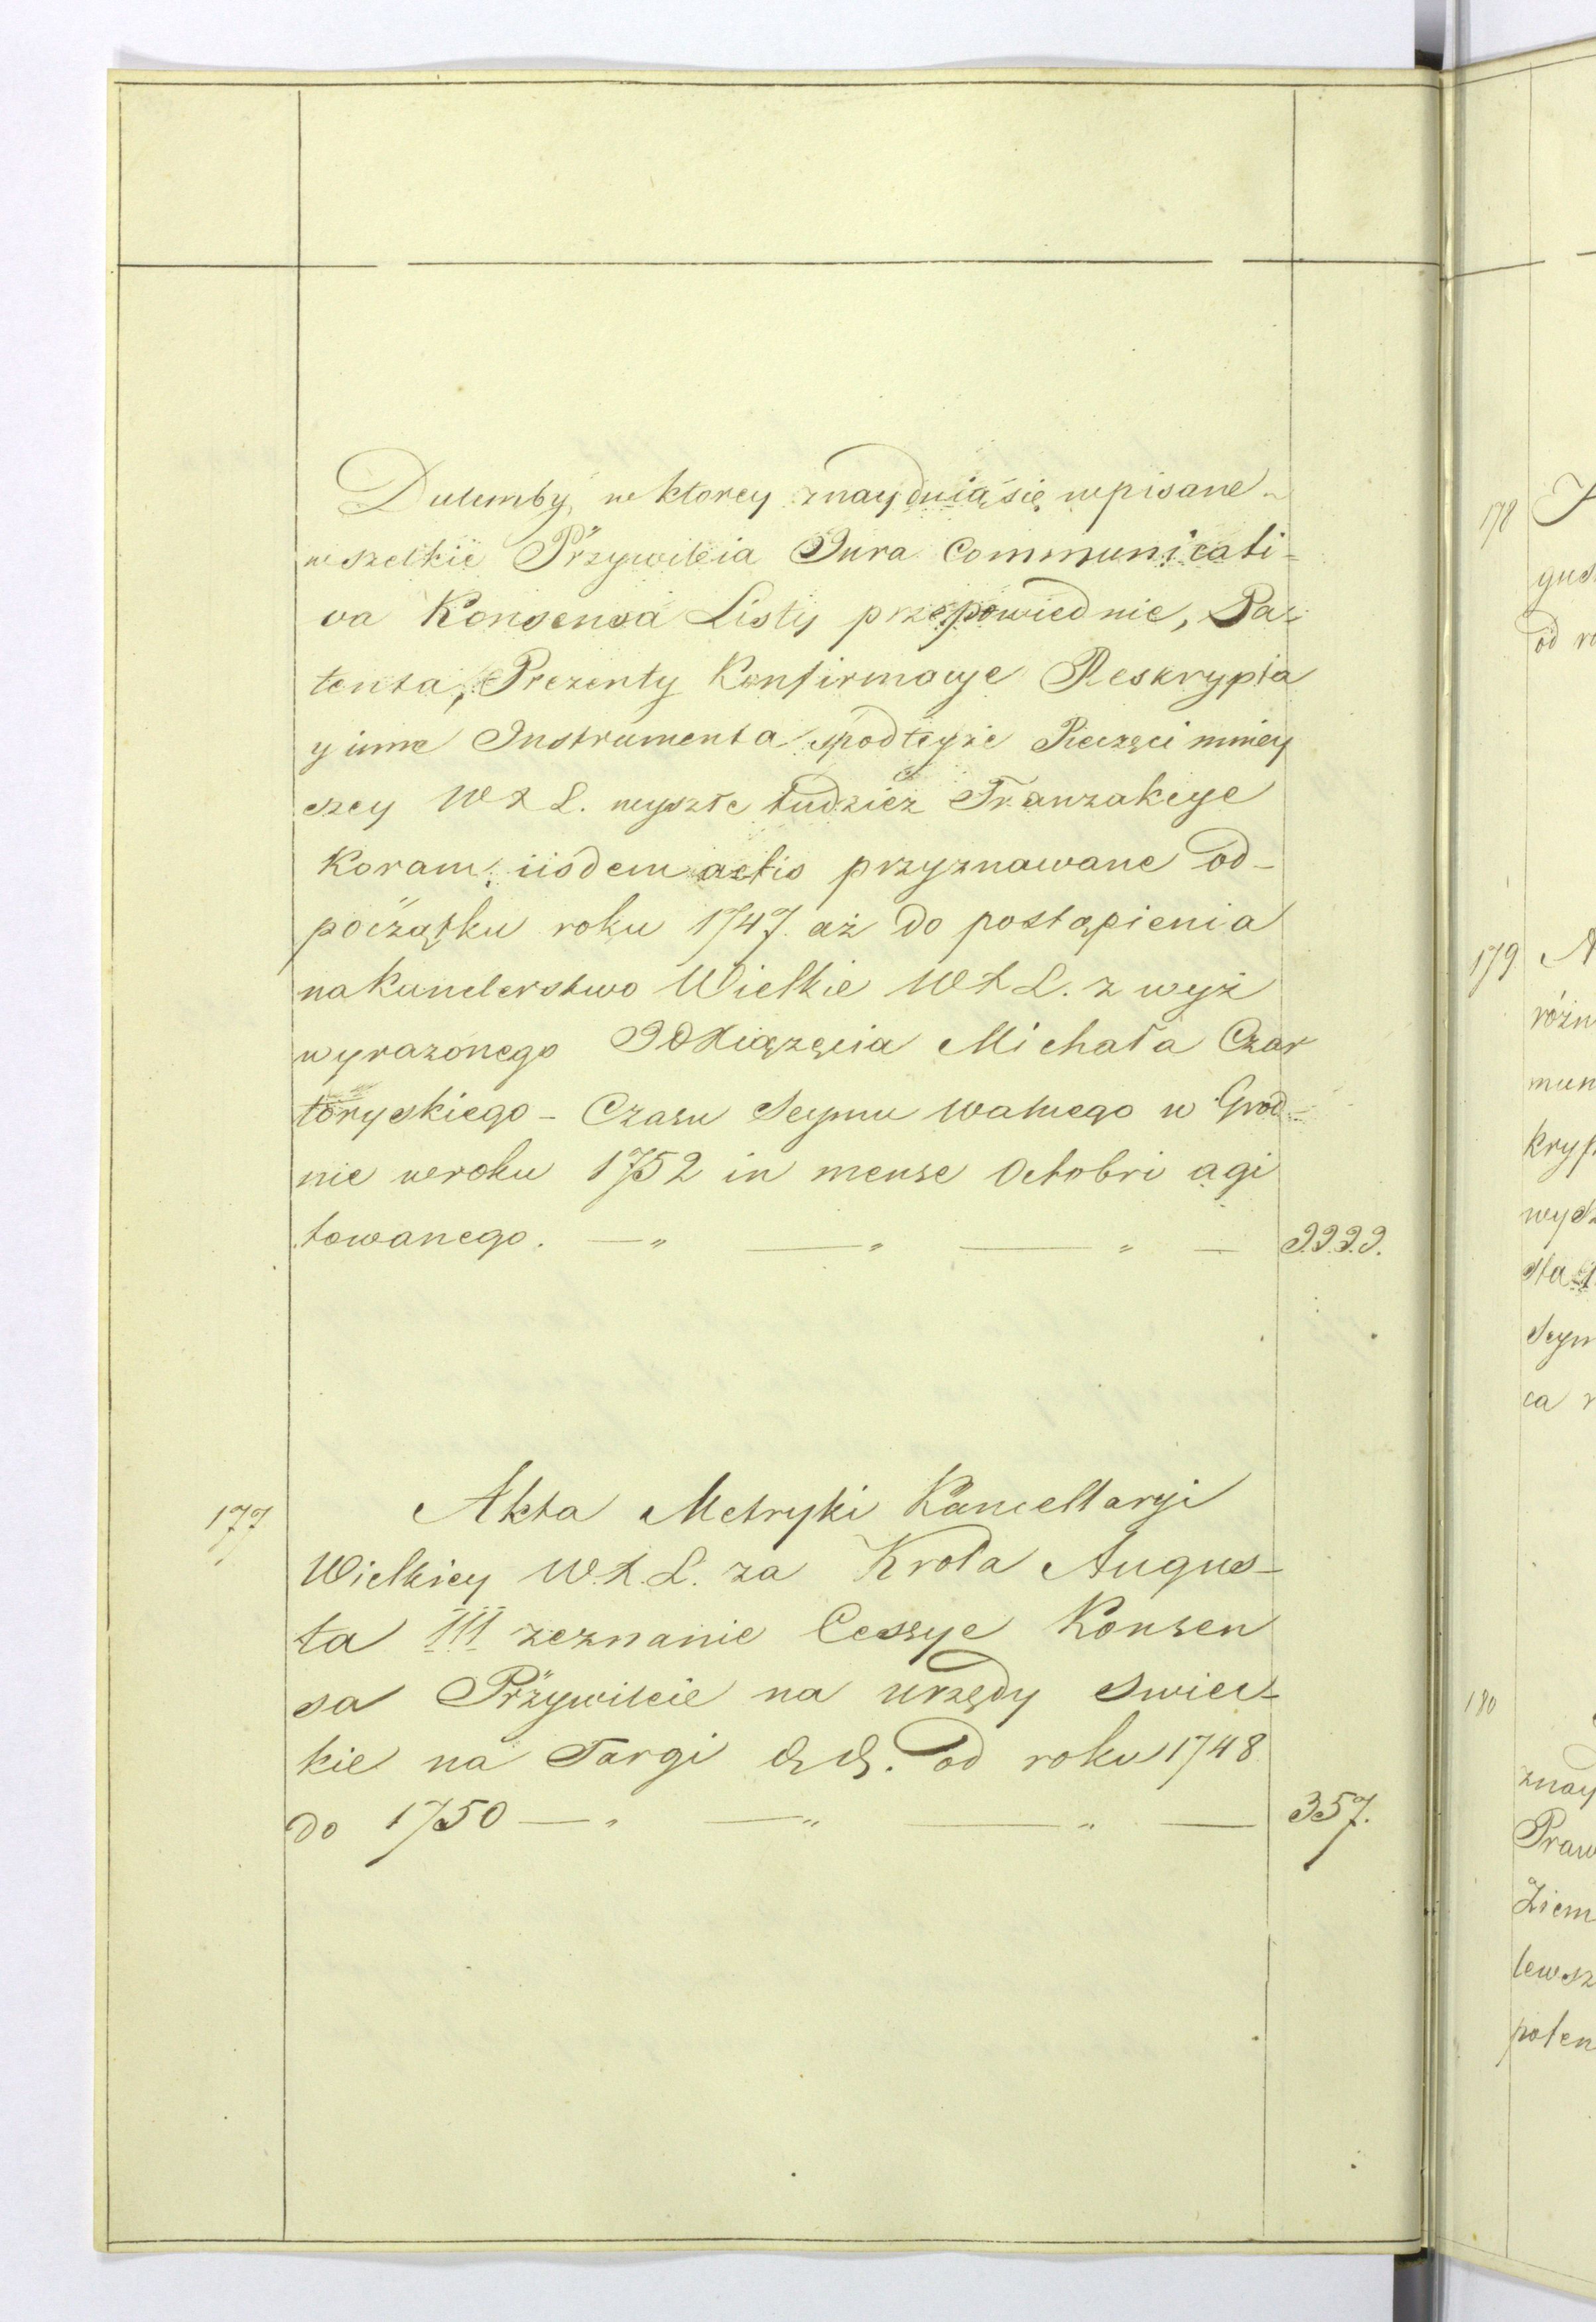 Dulemby, w ktorey znayduią się wpisane
wszelkie Przywileia Jura Communicati-
va Konsensa Listy przepowiednie, Pa-
tenta, Prezenty Konfirmacye Reskrypta
y inne Instrumenta spod teyże Pieczęci mniey
szey W X L. wyszłe tudzież Tranzakcye
Koram iisdem actis przyznawane od-
początku roku 1747. aż do postąpienia
na Kanclerstwo Wielkie W X L. z wyż
wyrazonego J O Xiążęcia Michała Czar
toryskiego - Czasu Seymu walnego w Grod-
nie w roku 1752 in mense Octobri agi
towanego. — „ — „ — „ — 9.9.9.9.
177 Akta Metryki Kancellaryi
Wielkiey W. X. L. za Krola Augus-
ta III zeznanie Cessye Konsen
sa Przywileie na urzędy Swiec-
kie na Targi & &. od roku 1748
do 1750 — „ — „ — „ — 357.
178
gus
od ro
179 A
różn
mun
kryp
wysz
sta
Seym
ca
180
znay
Praw
Ziem
lewsz
poten